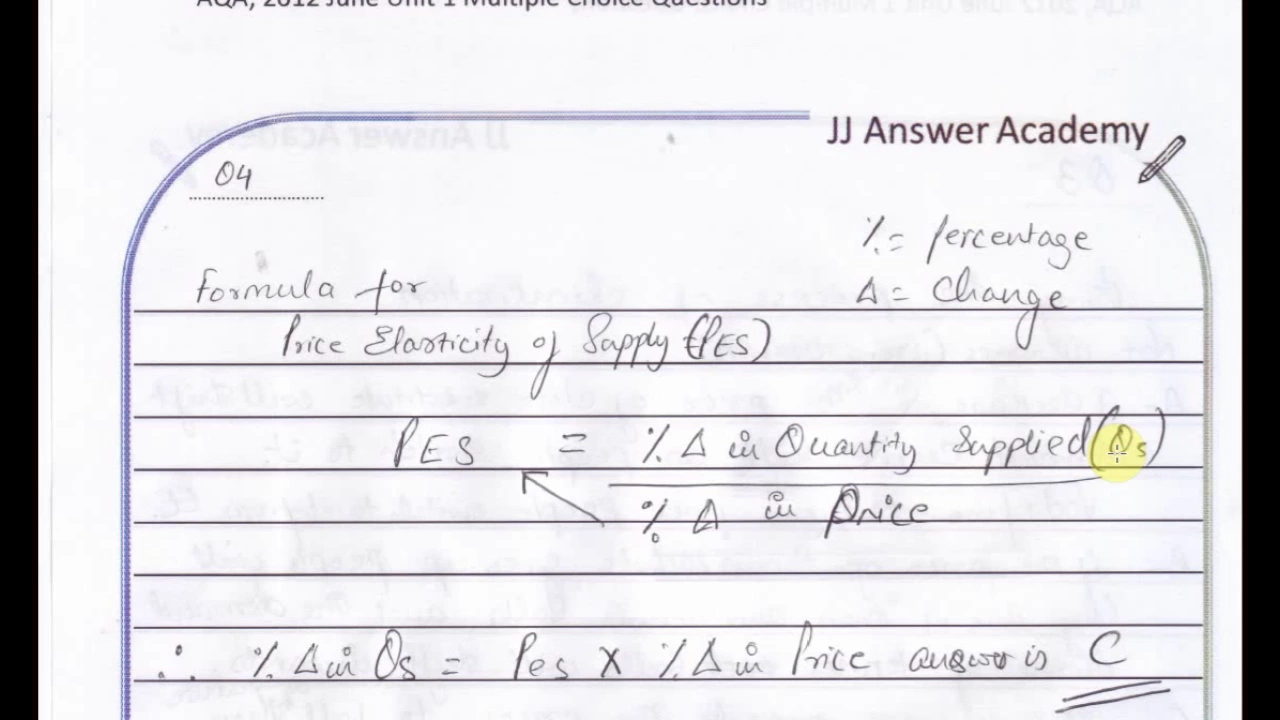 AQA, 2012 June Unit 1 Multiple Choice Questions
JJ Answer Academy
04
% = Percentage
Δ = Change
Formula for
Price Elasticity of Supply (PES)
PES = % Δ in Quantity Supplied (Qs)
% Δ in Price
∴ % Δ in Qs = Pes X % Δ in Price answer is C